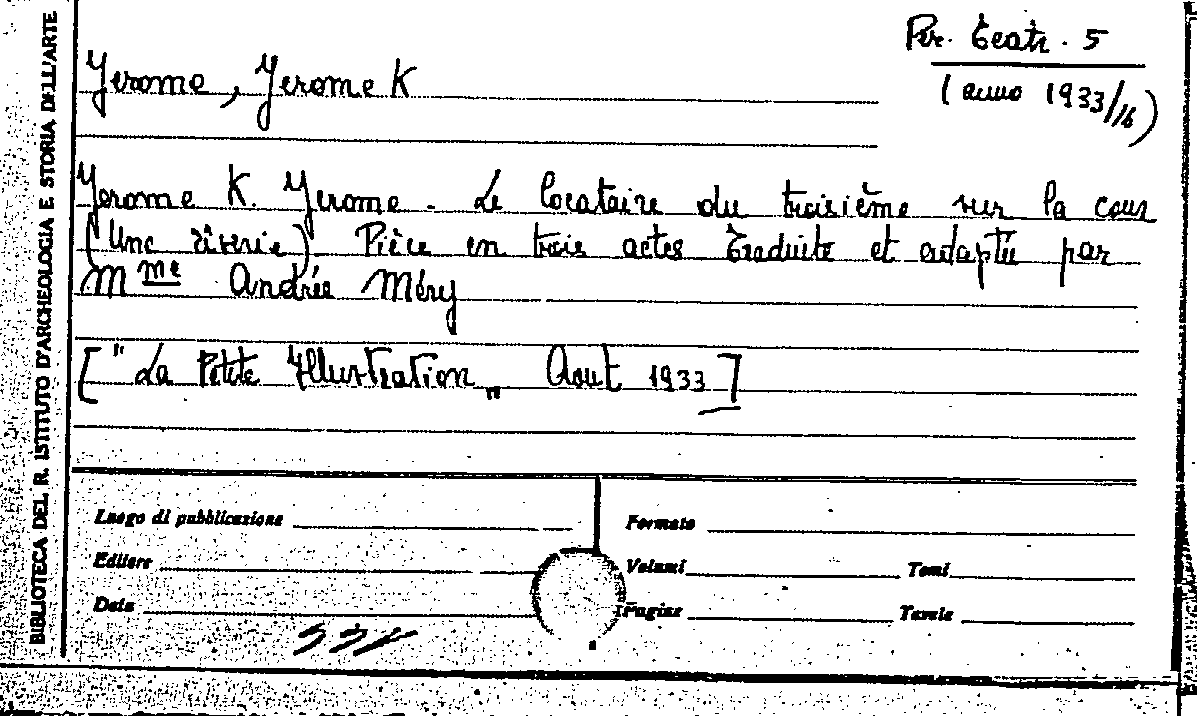 BIBLIOTECA DEL R. ISTITUTO D'ARCHEOLOGIA E STORIA DELL'ARTE
Per. Teatr. 5
(anno 1933/16)
Jerome, Jerome K
Jerome K. Jerome - Le locataire du troisième sur la cour
(Une rêverie). Pièce en trois actes traduite et adaptée par
Mme Andrée Méry
["La Petite Illustration„ Aout 1933]
Luogo di pubblicazione
Formato
Editore
Volumi Tomi
Data
Pagine Tavole